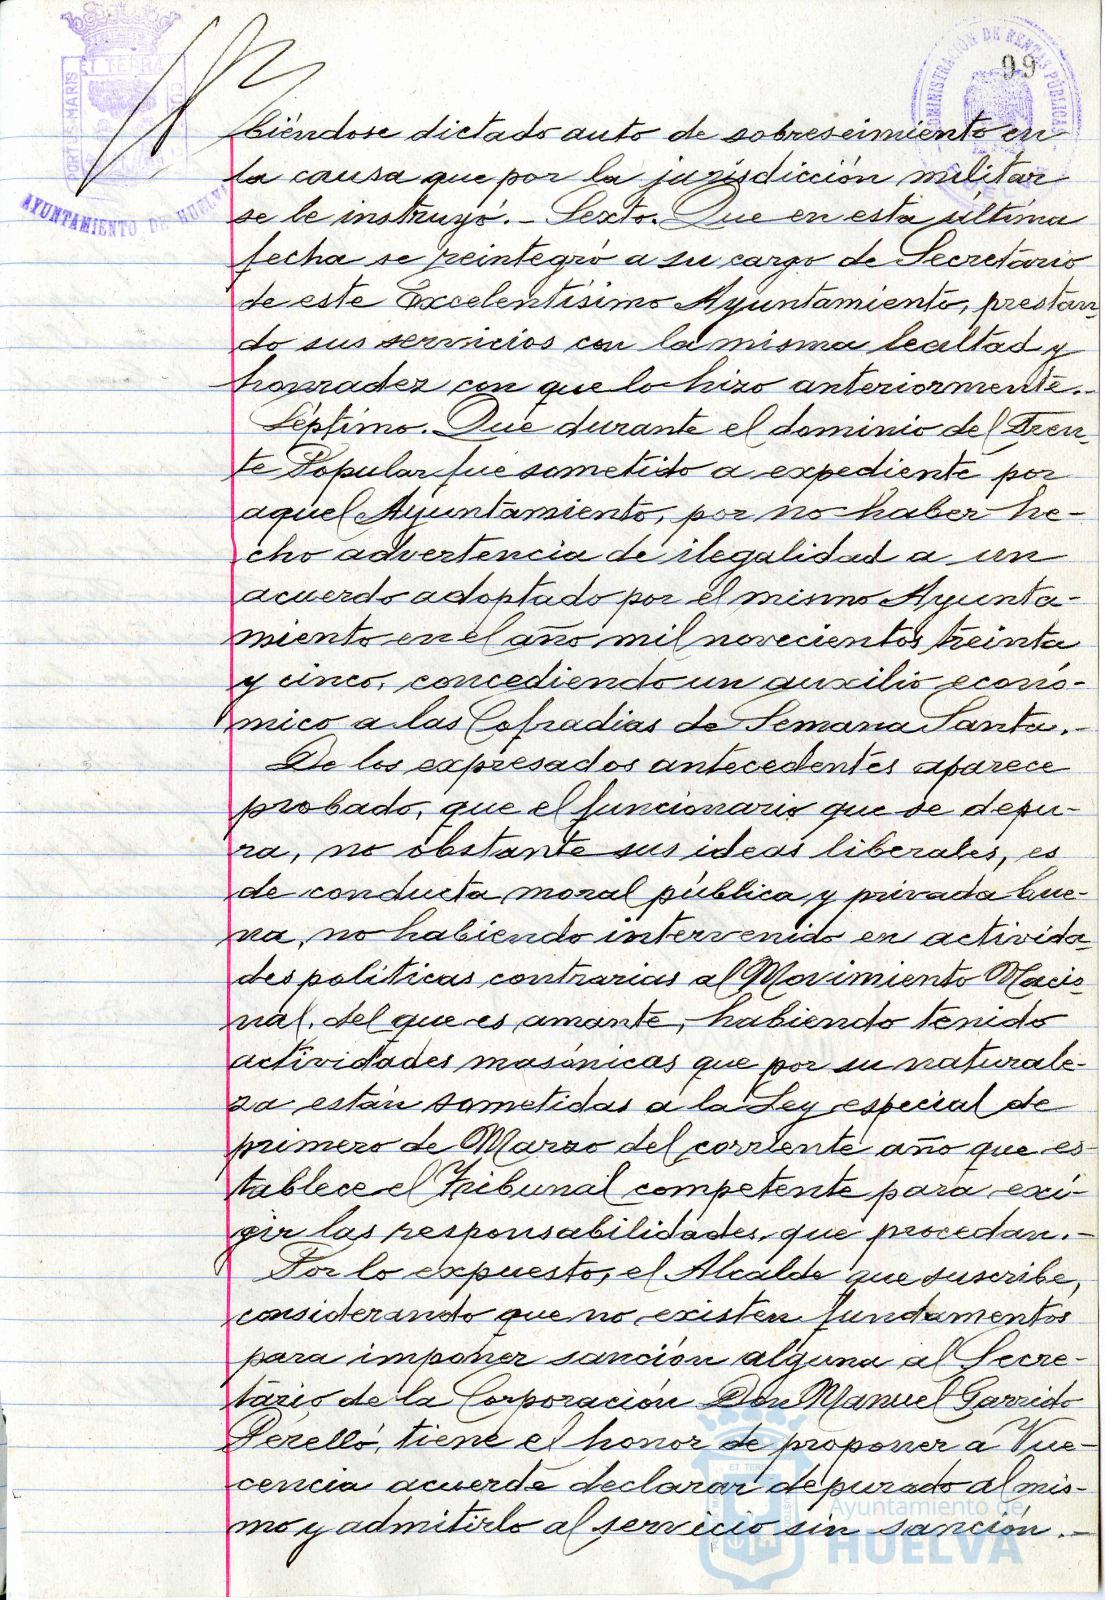 99
PORTUS MARIS ET TERRÆ CUSTODIA
AYUNTAMIENTO DE HUELVA
ADMINISTRACIÓN DE RENTAS PÚBLICAS
biéndose dictado auto de sobreseimiento en
la causa que por la jurisdicción militar
se le instruyó.- Sexto. Que en esta última
fecha se reintegró a su cargo de Secretario
de este Excelentísimo Ayuntamiento, prestan-
do sus servicios con la misma lealtad y
honradez con que lo hizo anteriormente.-
Séptimo. Que durante el dominio del Fren-
te Popular fue sometido a expediente por
aquel Ayuntamiento, por no haber he-
cho advertencia de ilegalidad a un
acuerdo adoptado por el mismo Ayunta-
miento en el año mil novecientos treinta
y cinco, concediendo un auxilio econó-
mico a las Cofradias de Semana Santa.-
De los expresados antecedentes aparece
probado, que el funcionario que se depu-
ra, no obstante sus ideas liberales, es
de conducta moral pública y privada bue-
na, no habiendo intervenido en activida-
des políticas contrarias al Movimiento Nacio-
nal, del que es amante, habiendo tenido
actividades masónicas que por su naturale-
za están sometidas a la Ley especial de
primero de Marzo del corriente año que es-
tablece el Tribunal competente para exi-
gir las responsabilidades que procedan.-
Por lo expuesto, el Alcalde que suscribe,
considerando que no existen fundamentos
para imponer sanción alguna al Secre-
tario de la Corporación Don Manuel Garrido
Perelló, tiene el honor de proponer a Vue-
cencia acuerde declarar depurado al mis-
mo y admitirlo al servicio sin sanción.-
Ayuntamiento de
HUELVA